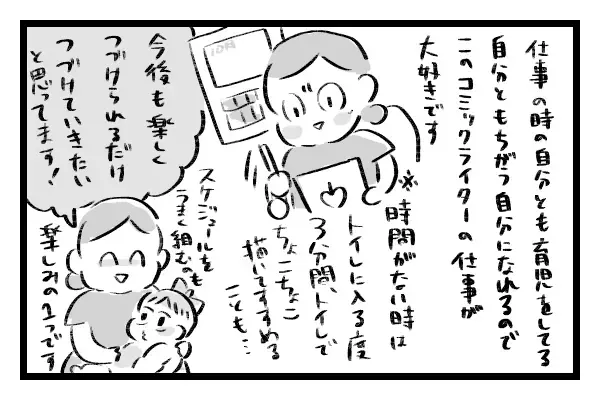 仕事の時の自分とも育児をしてる
自分ともちがう自分になれるので
このコミックライターの仕事が
大好きです
※時間がない時は
トイレに入る度
3分間、トイレで
ちょこちょこ
描いてすすめる
ことも…
スケジュールを
うまく組むのも
楽しみの1つです
今後も楽しく
つづけられるだけ
つづけていきたい
と思ってます!